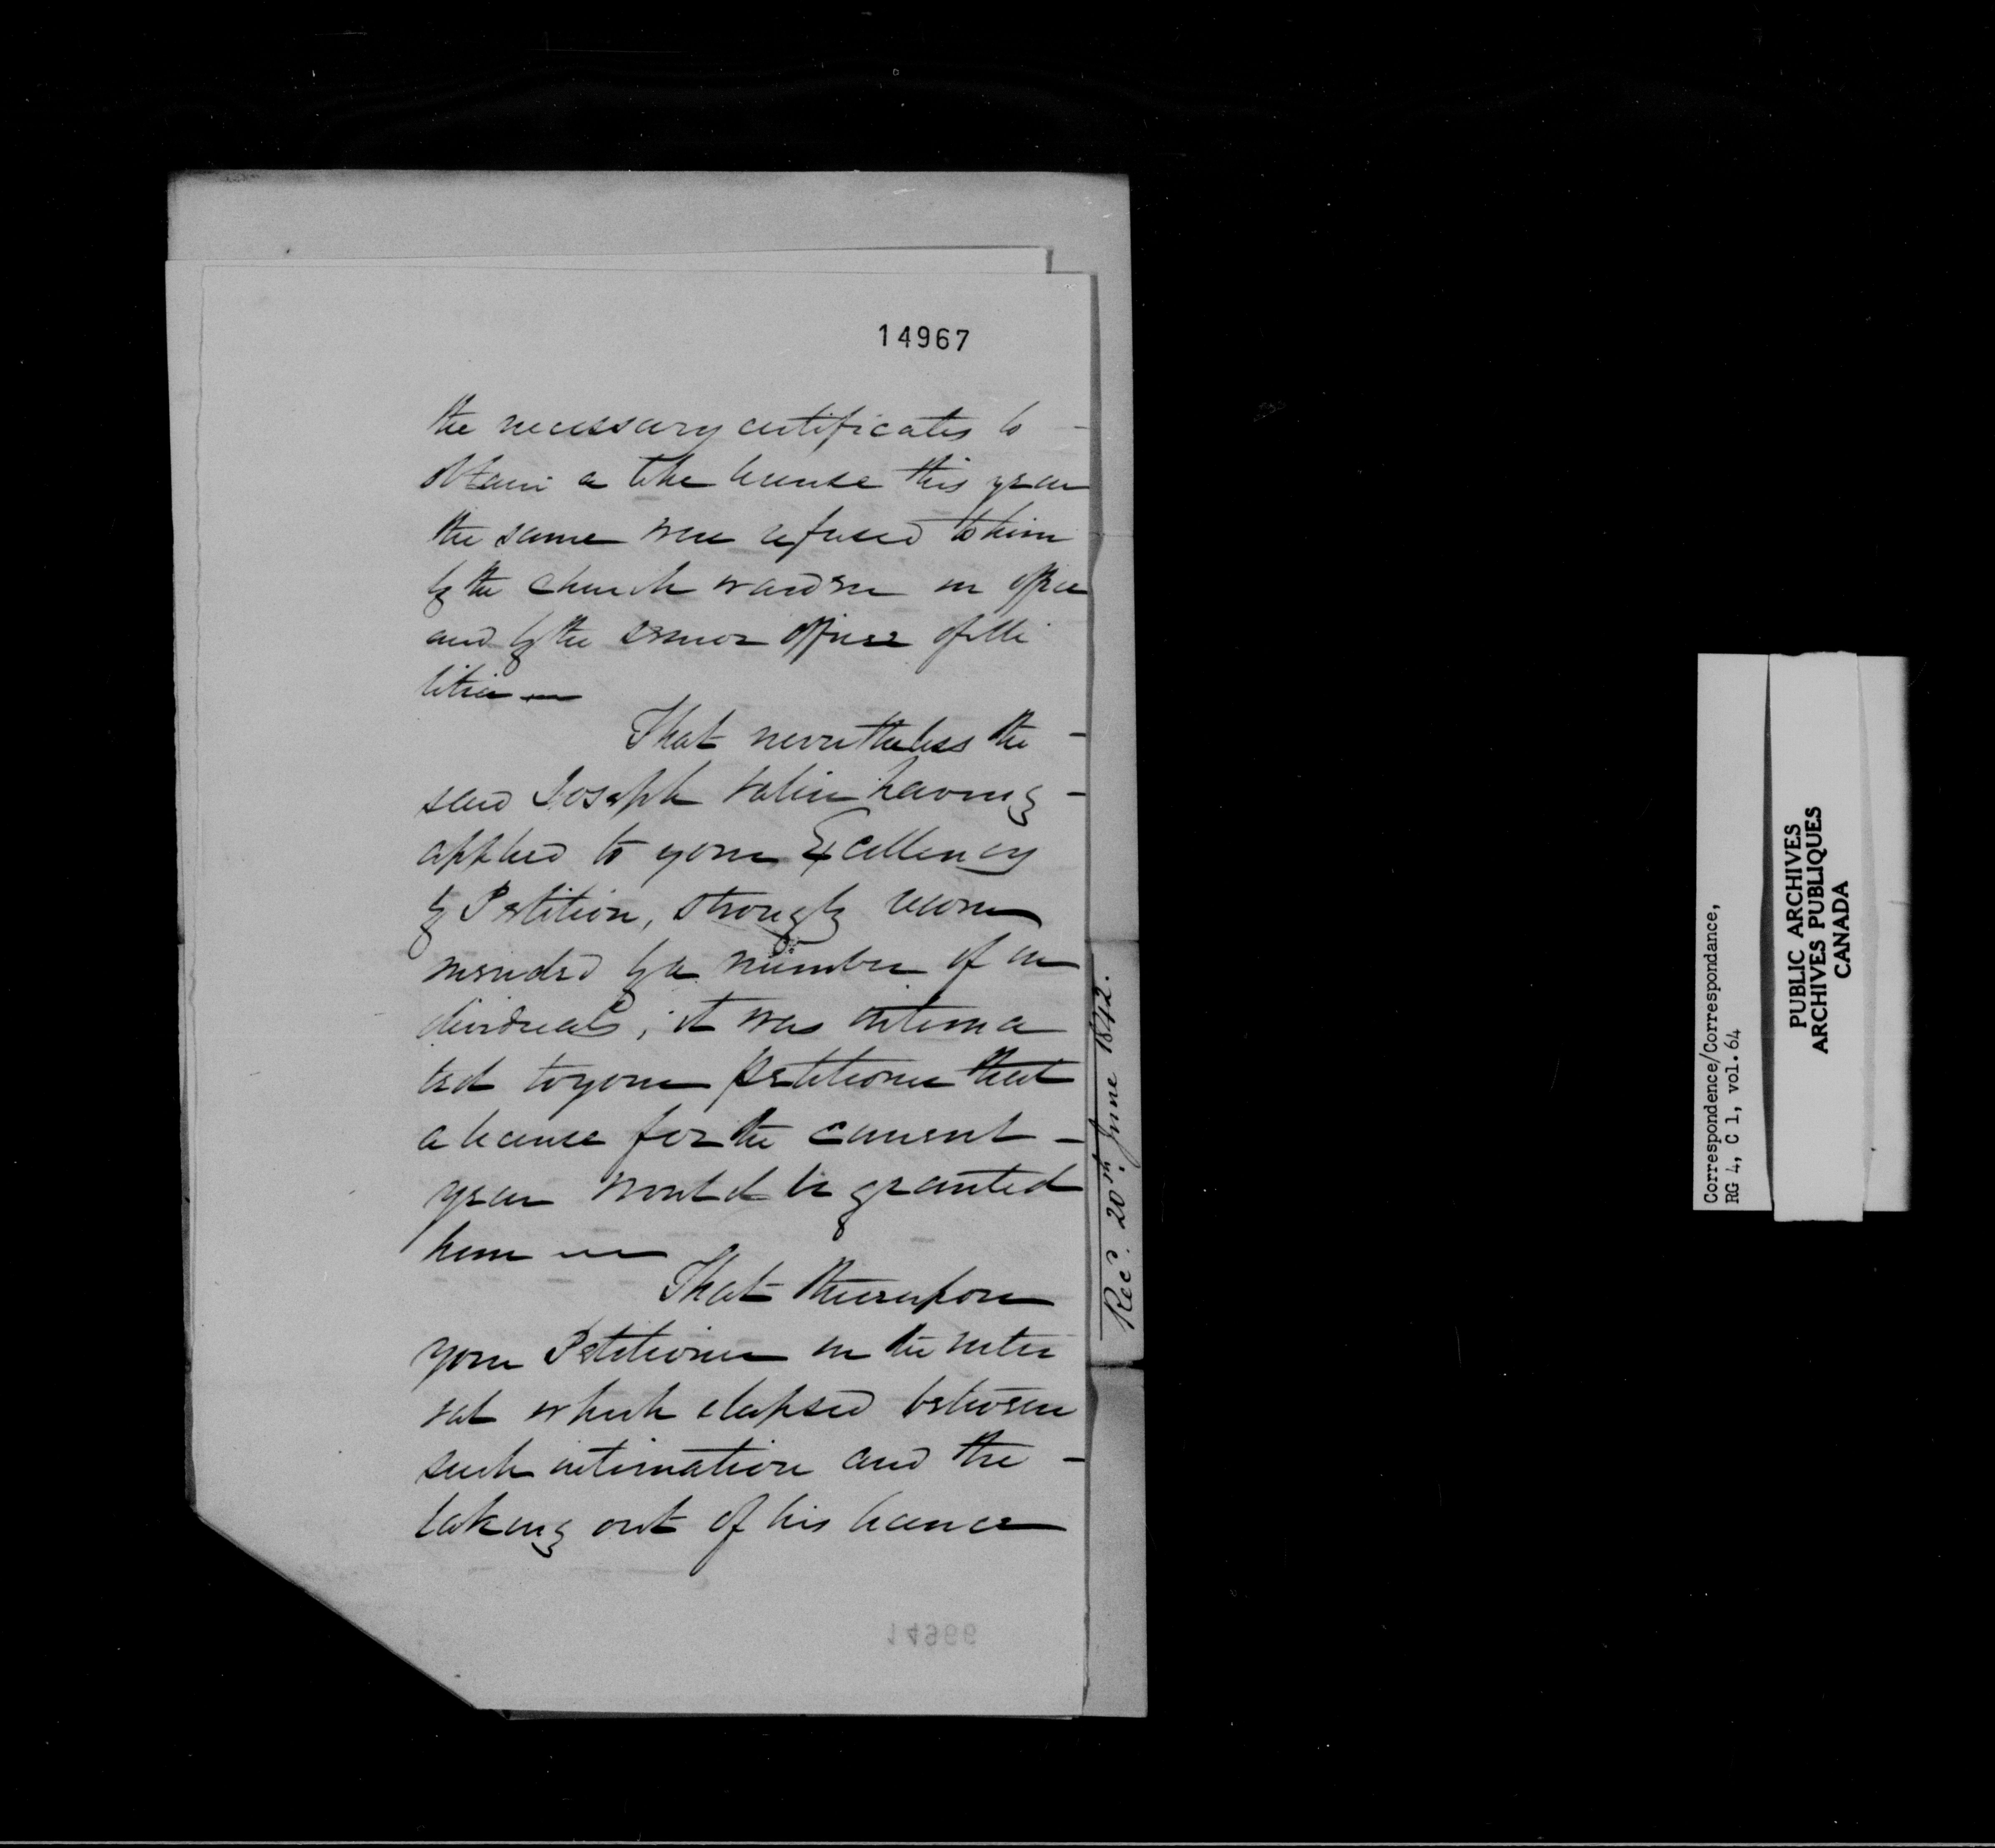 14967
the necessary certificates to -
obtain a like license this year
the same were refused to him
by the church warden in office
and by the senior officer of Mi
litia —
That nevertheless the -
said Joseph having -
applied to your Excellency
by Petition, strongly recom
mended by a number of in
dividuals; it was intima
ted to your petitioner that
a licence for the current -
year would be granted
him —
That thereupon
your Petitioner in the inter
val which elapsed between
such intimation and the -
taking out of his licence
14966
Recd. 20th June 1842.
Correspondence/Correspondance,
RG 4, C 1, vol. 64
PUBLIC ARCHIVES
ARCHIVES PUBLIQUES
CANADA